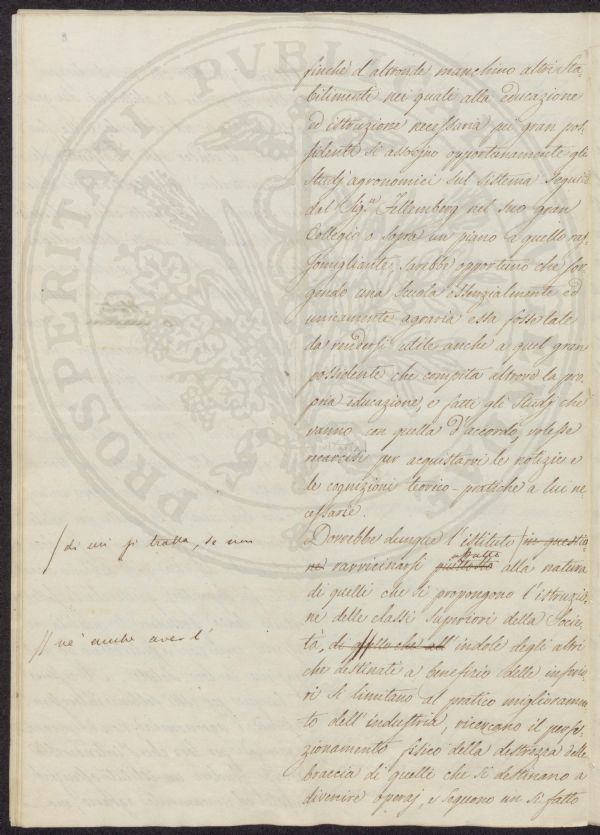 finchè d'altronde manchino altri sta-
bilimenti nei quali alla educazione
ed istruzione necessaria pei gran pos-
sidenti si associno opportunamente gli
studj agronomici sul sistema seguito
dal Sig.r Fellemberg nel suo gran
Collegio o sopra un piano a quello ras-
somigliante; sarebbe opportuno che sor-
gendo una scuola essenzialmente ed
unicamente agraria essa fosse tale
da rendersi utile anche a quel gran
possidente che compita altrove la pro-
pria educazione, e fatti gli studj che
vanno con quella d'accordo, volesse
recarsi per acquistarvi le notizie e
le cognizioni teorico-pratiche a lui ne-
cessarie.
Dovrebbe dunque l'istituto in questio-
/ di cui si tratta, se non
ne ravvicinarsi piuttosto affatto alla natura
di quelli che si propongono l'istruzio-
ne delle classi superiori della Socie-
tà, di quello che all' indole degli altri
// nè anche aver l'
che destinati a beneficio delle inferio-
ri si limitano al pratico miglioramen-
to dell'industria, ricercano il perfe-
zionamento fisico della destrezza delle
braccia di quelli che si destinano a
divenire operaj, e seguono un sì fatto
PROSPERITATI PVBLI